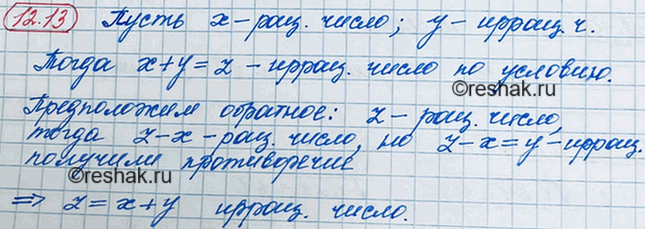 12.13 Пусть x - рац. число; y - иррац. ч.
Тогда x+y=z - иррац. число по условию.
©reshak.ru
Предположим обратное: z - рац. число,
тогда z-x - рац. число, но z-x=y - иррац.
получили противоречие
©reshak.ru
⇒ z=x+y иррац. число.